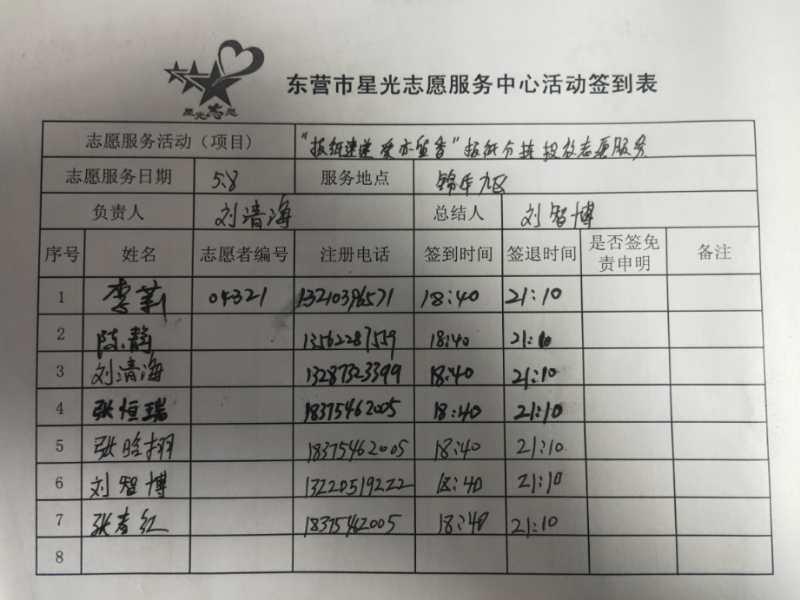 星光志愿
东营市星光志愿服务中心活动签到表
志愿服务活动（项目） “报纸速递 爱亦留香”报纸分拣投放志愿服务
志愿服务日期 5.8 服务地点 锦华九区
负责人 刘清海 总结人 刘智博
序号 姓名 志愿者编号 注册电话 签到时间 签退时间 是否签免责申明 备注
1 李莉 04321 13210396571 18:40 21:10
2 陈静 13562287559 18:40 21:10
3 刘清海 13287323399 18:40 21:10
4 张恒瑞 18375462005 18:40 21:10
5 张晗栩 18375462005 18:40 21:10
6 刘智博 13220519222 18:40 21:10
7 张春红 18375462005 18:40 21:10
8